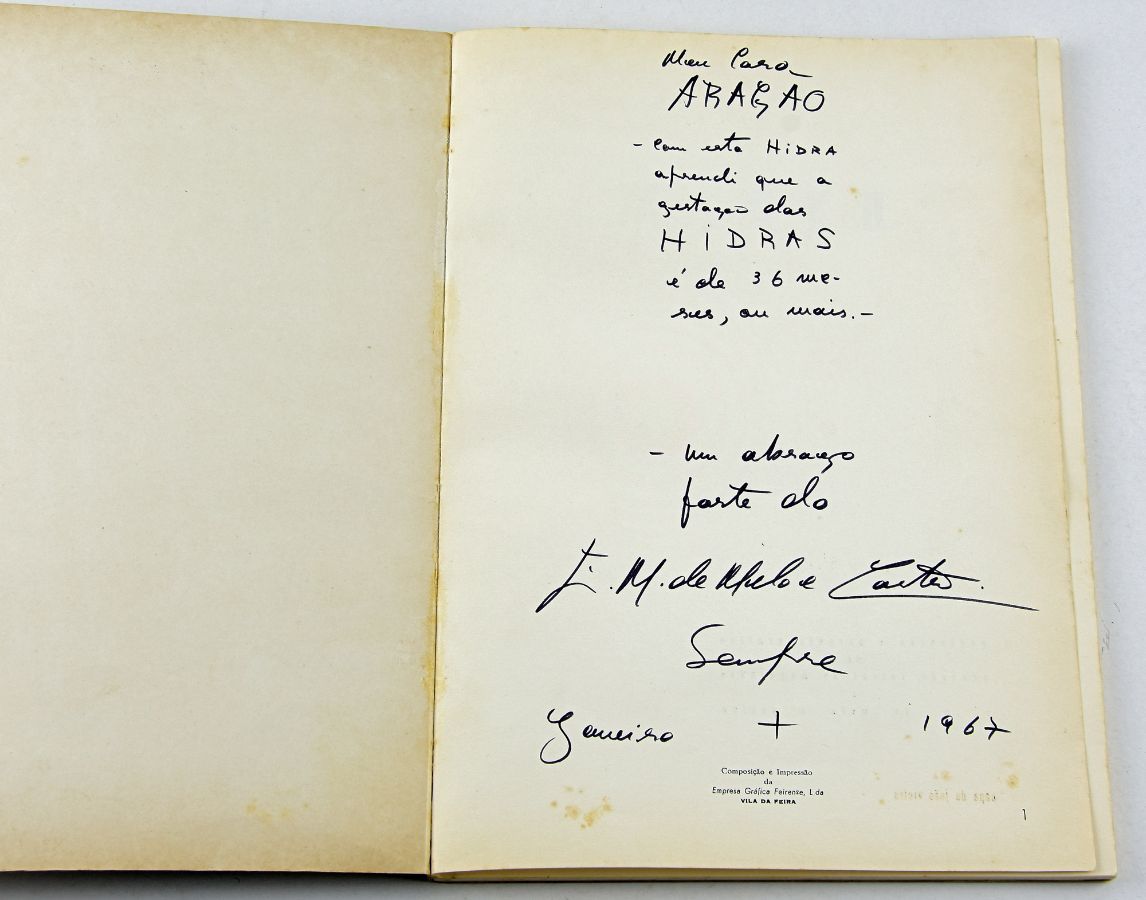 Meu Caro
ARAGÃO
- com esta HiDRA
aprendi que a
gestação das
HiDRAS
é de 36 me-
ses, ou mais. -
- um abraço
forte do
E. M. de Melo e Castro.
Sempre
Janeiro + 1967
Composição e Impressão
da
Empresa Gráfica Feirense, L.da
VILA DA FEIRA
1
capa de joão vieira